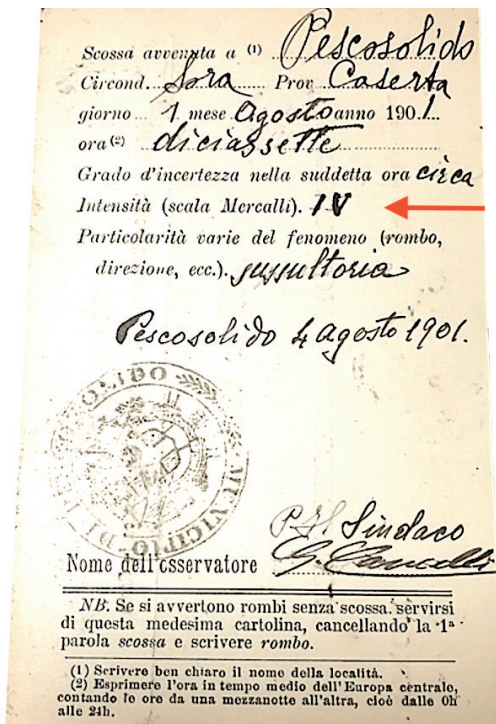 Scossa avvenuta a (1) Pescosolido
Circond. Sora Prov Caserta
giorno 1 mese Agosto anno 1901.
ora (2) diciassette
Grado d'incertezza nella suddetta ora circa
Intensità (scala Mercalli). IV
Particolarità varie del fenomeno (rombo,
direzione, ecc.). sussultoria
Pescosolido 4 agosto 1901.
MUNICIPIO DI
Sindaco
Nome dell'osservatore
NB. Se si avvertono rombi senza scossa. servirsi
di questa medesima cartolina, cancellando la 1ª
parola scossa e scrivere rombo.
(1) Scrivere ben chiaro il nome della località.
(2) Esprimere l'ora in tempo medio dell'Europa centrale,
contando le ore da una mezzanotte all'altra, cioè dalle 0h
alle 24h.